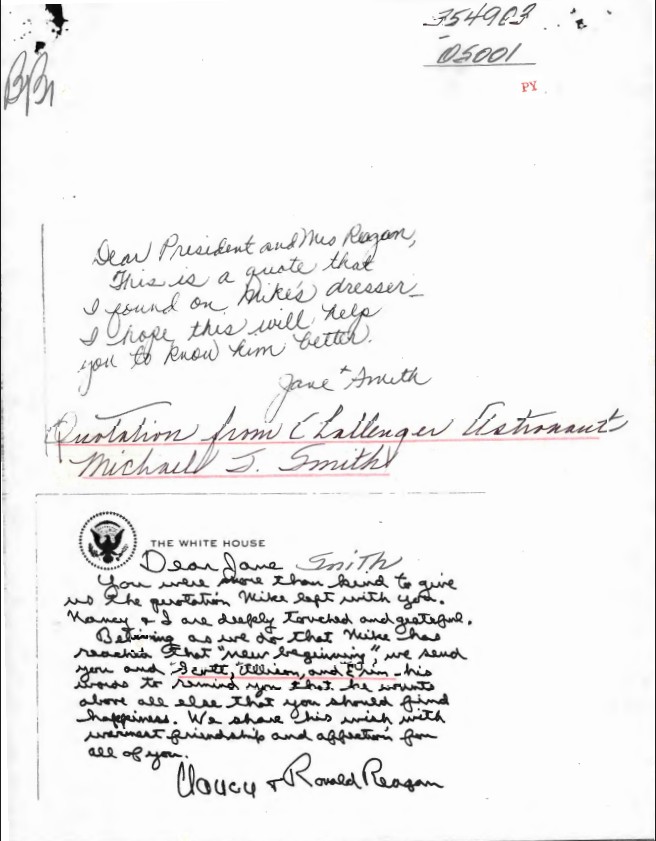 354903
05001
PY
Dear President and Mrs Reagan,
This is a quote that
I found on Mike's dresser_
I hope this will help
you to know him better.
Jane Smith
Quotation from Challenger Astronaut
Michael J. Smith
THE WHITE HOUSE
Dear Jane Smith
You were more than kind to give
us the quotation Mike left with you.
Nancy & I are deeply touched and grateful.
Believing as we do that Mike has
reached that "new beginning" we send
you and Scott, Allison, and Erin – his
words to remind you that he wants
above all else that you should find
happiness. We share his wish with
warmest friendship and affection for
all of you.
Nancy & Ronald Reagan